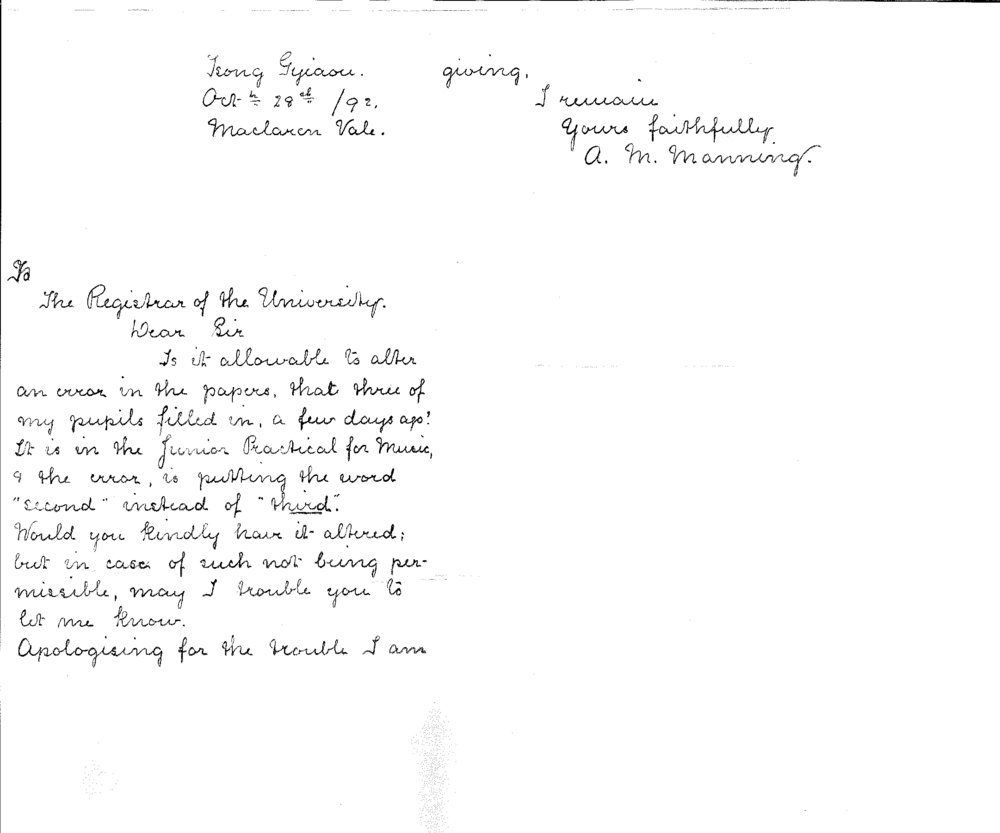 Tsong Gyiaou.
Octr 28th /92.
Maclaren Vale.
To
The Registrar of the University.
Dear Sir
Is it allowable to alter
an error in the papers, that three of
my pupils filled in, a few days ago?
It is in the Junior Practical for Music,
& the error, is putting the word
"second" instead of "third".
Would you kindly have it altered;
but in case of such not being per-
missible, may I trouble you to
let me know.
Apologising for the trouble I am
giving,
I remain
Yours faithfully
A. M. Manning.